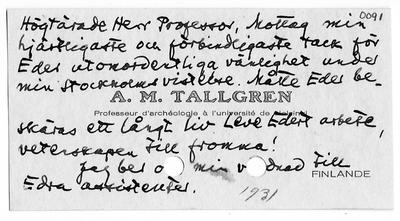 0091
Högtärade Herr Professor, Mottag min
hjärtligaste och förbindligaste tack för
Eder utomordentliga vänlighet under
min Stockholms vistelse. Måtte Eder be-
A. M. TALLGREN
Professeur d'archéologie à l'université de Helsinki
skäras ett långt liv Leve Edert arbete,
vetenskapen till fromma!
Jag ber o min v dnad till
FINLANDE
Edra assistenter.
1931